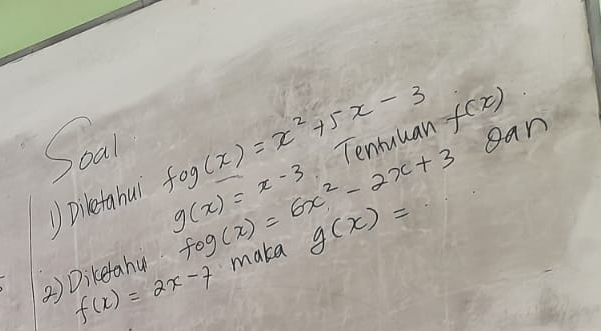 Soal.
1) Diketahui fog(x) = x² + 5x - 3
g(x) = x - 3. Tentukan f(x).
2) Diketahui fog(x) = 6x² - 2x + 3 dan
f(x) = 2x - 7 maka g(x) = ...